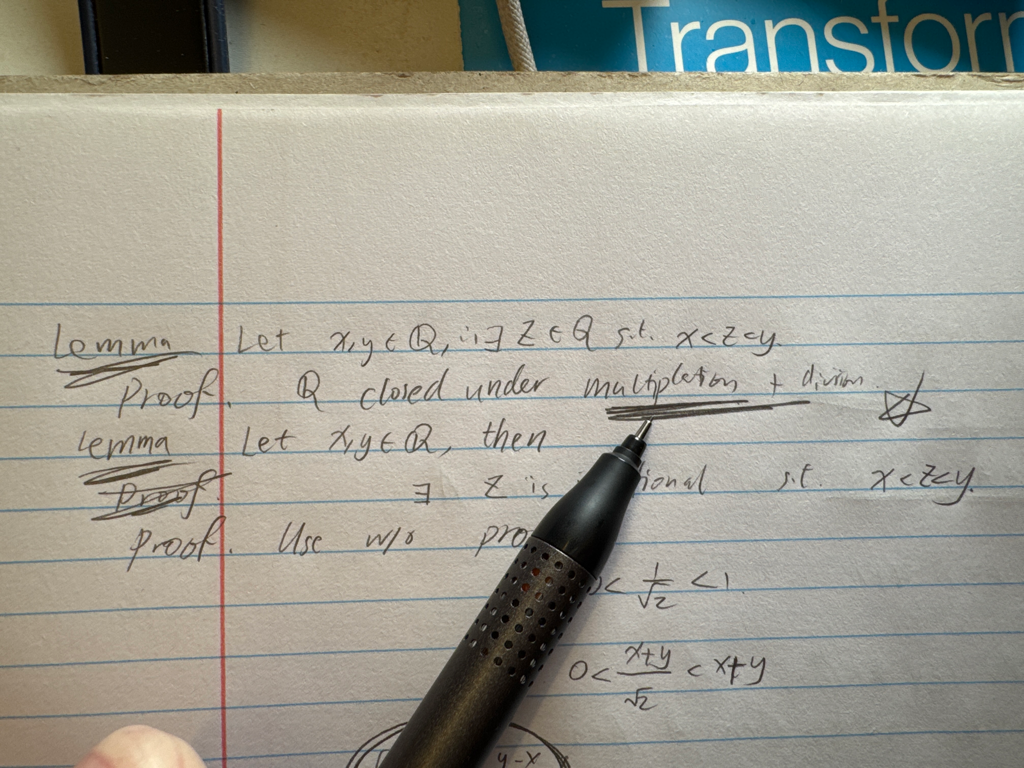 Transform
Lemma Let x,y ∈ Q, ∃ z ∈ Q s.t. x<z<y
Proof. Q closed under multipletion + division.
Lemma Let x,y ∈ Q, then
Proof. ∃ z is s.t. x<z<y.
Proof. Use w/o
0< 1/√2 <1.
0< x+y/√2 < x+y
y-x